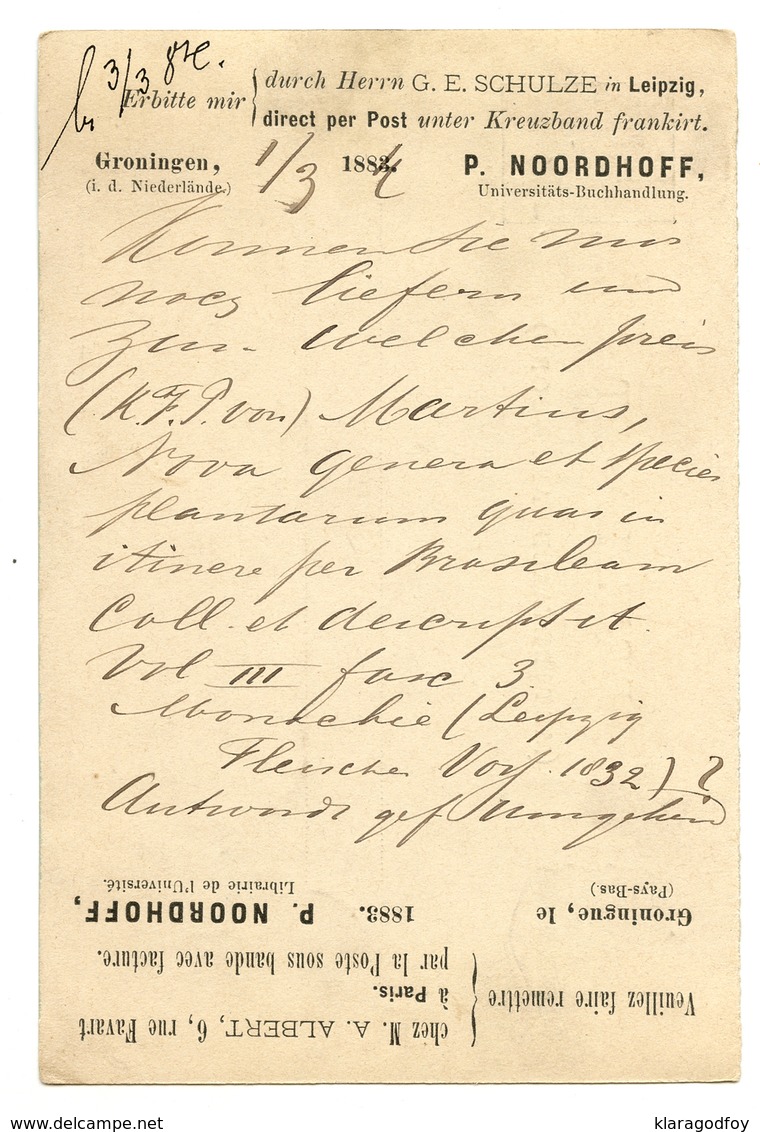 3/3 84.
Erbitte mir { durch Herrn G. E. SCHULZE in Leipzig,
direct per Post unter Kreuzband frankirt.
Groningen, 1/3 1883. 4 P. NOORDHOFF,
(i. d. Niederlände.) Universitäts-Buchhandlung.
Konnen Sie mir
noch liefern und
zu welchen preis
(K.F.P. von) Martius,
Nova genera et species
plantarum quas in
itinere per Brasileam
Coll. et descripsit.
Vol III fasc 3
(Leipzig
Fleischer 1832) ?
Antwordt gef umgehend
Veuillez faire remettre { chez M. A. ALBERT, 6, rue Favart
à Paris.
par la Poste sous bande avec facture.
Groningue, le 1883. P. NOORDHOFF,
(Pays-Bas.) Librairie de l'Université.
delcampe.net
klaragodfoy